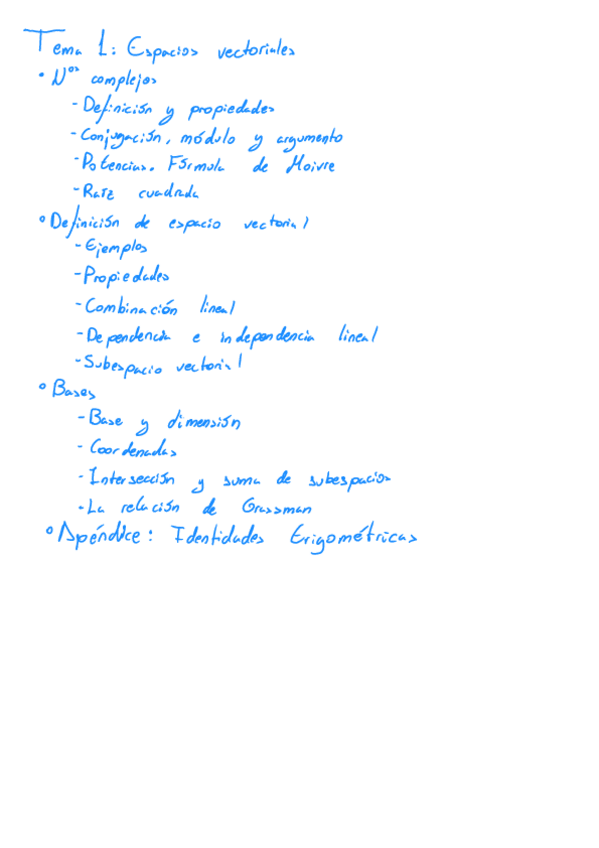 Tema 1: Espacios vectoriales
• Nos complejos
- Definición y propiedades
- Conjugación, módulo y argumento
- Potencias. Fórmula de Moivre
- Raíz cuadrada
• Definición de espacio vectorial
- Ejemplos
- Propiedades
- Combinación lineal
- Dependencia e independencia lineal
- Subespacio vectorial
• Bases
- Base y dimensión
- Coordenadas
- Intersección y suma de subespacios
- La relación de Grassman
• Apéndice: Identidades trigométricas